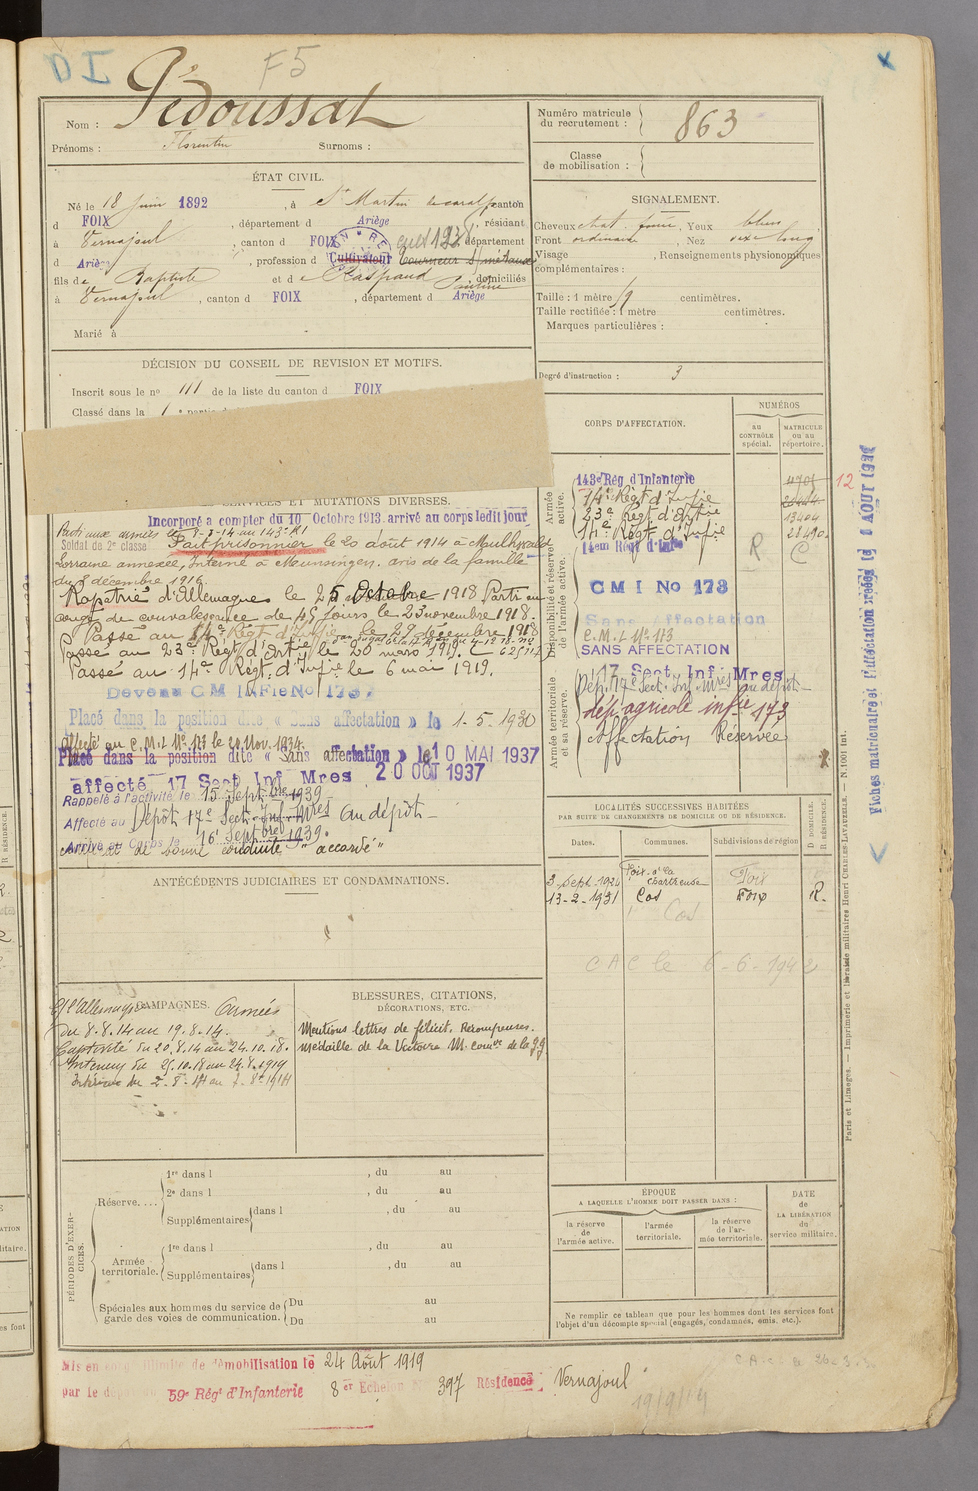 D I
F5
Nom : Pédoussat
Prénoms : Florentin Surnoms :
Numéro matricule du recrutement : 863
Classe de mobilisation :
ÉTAT CIVIL.
Né le 18 Juin 1892, à St Martin de caralp canton
d FOIX, département d Ariège, résidant
à Vernajoul, canton d FOIX, département
d Ariège, profession d Cultivateur Tourneur S/métaux
fils de Baptiste et de Raspaud, domiciliés
à Vernajoul, canton d FOIX, département d Ariège
Marié à
SIGNALEMENT.
Cheveux chat. foncé, Yeux bleus
Front ordinaire, Nez long
Visage, Renseignements physionomiques
complémentaires :
Taille : 1 mètre centimètres.
Taille rectifiée : 1 mètre centimètres.
Marques particulières :
Degré d'instruction : 3
DÉCISION DU CONSEIL DE REVISION ET MOTIFS.
Inscrit sous le no 111 de la liste du canton d FOIX
Classé dans la 1
SERVICES ET MUTATIONS DIVERSES.
Incorporé a compter du 10 Octobre 1913. arrivé au corps ledit jour
Parti aux armées le 8-8-14 au 143e RI
Soldat de 2e classe Fait prisonnier le 20 août 1914 à
Lorraine annexée, Interné à Meunsingen. avis de la famille
du 8 décembre 1916.
Rapatrié d'Allemagne le 25 Octobre 1918 Parti en
congé de convalescence de 45 jours le 23 novembre 1918.
Passé au 14e Régt d'Infie le 27 décembre 1918
Passé au 23e Régt d'Artie le 20 mars 1919.
Passé au 14e Régt. d'Infie le 6 mai 1919.
Devenu C M INFie No 173
Placé dans la position dite « Sans affectation » le 1-5-1930
Affecté au C.M.I. No 173 le 20 Nov. 1934.
Placé dans la position dite « Sans affectation » le 10 MAI 1937
affecté 17 Sect Inf Mres 20 OCT 1937
Rappelé à l'activité le 15 Septbre 1939
Affecté au Dépôt 17e Sect. Inf. Mres Au dépôt
Arrivé au Corps le 16 Septbre 1939.
certificat de bonne conduite "accordé"
CORPS D'AFFECTATION.
NUMÉROS
au CONTRÔLE spécial.
MATRICULE ou au répertoire.
Armée active.
143e Rég d'Infanterie 4705 12
14e Régt d'Infie
23e Régt d'Artie 13404
14e Régt d'Infie 28490
Disponibilité et réserve de l'armée active.
14em Régt d'Infie R C
C M I No 173
Sans Affectation
C.M.I. No 173
SANS AFFECTATION
Armée territoriale et sa réserve.
17 Sect Inf Mres
Dép. 17e Sect. Inf. Mres Au dépôt
dép agricole infie 173
Affectation Réservée
Fiches matriculaire et d'affectation créées le AOUT
LOCALITÉS SUCCESSIVES HABITÉES
PAR SUITE DE CHANGEMENTS DE DOMICILE OU DE RÉSIDENCE.
Dates. Communes. Subdivisions de région D DOMICILE. R RÉSIDENCE.
3 Sept. 1924 Foix Foix
13-2-1931 Cos Foix R.
Cos
C A C le 6-6-1942
ANTÉCÉDENTS JUDICIAIRES ET CONDAMNATIONS.
CAMPAGNES.
C/ l'Allemagne Armées
Du 8.8.14 au 19.8.14.
Captivité du 20.8.14 au 24.10.18.
Intérieur du 25.10.18 au 24.8.1919
Intérieur du 2-8-14 au 7-8-1914
BLESSURES, CITATIONS,
DÉCORATIONS, ETC.
Mentions lettres de félicit. Récompenses.
Médaille de la Victoire M. comve de la G.G.
PÉRIODES D'EXERCICES.
Réserve.... 1re dans l, du au
2e dans l, du au
Supplémentaires dans l, du au
Armée territoriale. 1re dans l, du au
Supplémentaires dans l, du au
Spéciales aux hommes du service de garde des voies de communication. Du au
Du au
ÉPOQUE
A LAQUELLE L'HOMME DOIT PASSER DANS :
la réserve de l'armée active. l'armée territoriale. la réserve de l'armée territoriale.
DATE de LA LIBÉRATION du service militaire.
Ne remplir ce tableau que pour les hommes dont les services font
l'objet d'un décompte spécial (engagés, condamnés, omis, etc.).
Paris et Limoges. — Imprimerie et librairie militaires Henri CHARLES-LAVAUZELLE. — N. 1001 int.
Mis en congé illimité de démobilisation le 24 Août 1919
par le dépôt 59e Régt d'Infanterie 8er Echelon No 397 Résidence Vernajoul
19/9/19